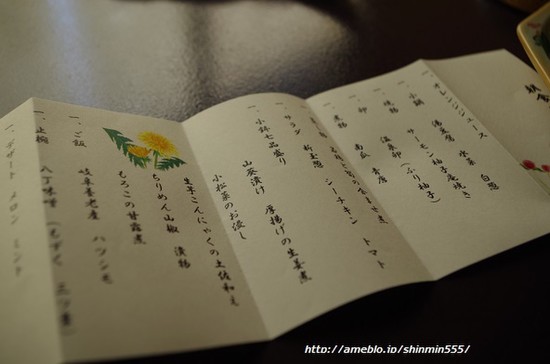 一、オレンジジュース
一、小鍋
湯葉鶏 水菜 白葱
一、焼物
サーモン柚子庵焼き
一、卵
温泉卵(ふり柚子)
一、煮物
南瓜 青唐
一、サラダ
新玉葱 シーチキン トマト
一、小鉢七品盛り
山葵漬け 厚揚げの生姜煮
小松菜のお浸し
生芋こんにゃくの土佐和え
ちりめん山椒 漬物
もろこの甘露煮
一、ご飯
岐阜養老産 ハツシモ
一、止椀
八丁味噌(もずく 三つ葉)
一、デザート メロン ミント
http://ameblo.jp/shinmin555/